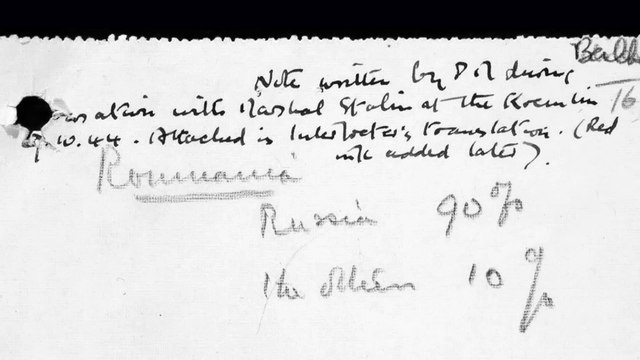 Note written by PM during
conversation with Marshal Stalin at the Kremlin
10.44. Attached is Interpreter's translation. (Red
ink added later).
Roumania
Russia 90%
The others 10%